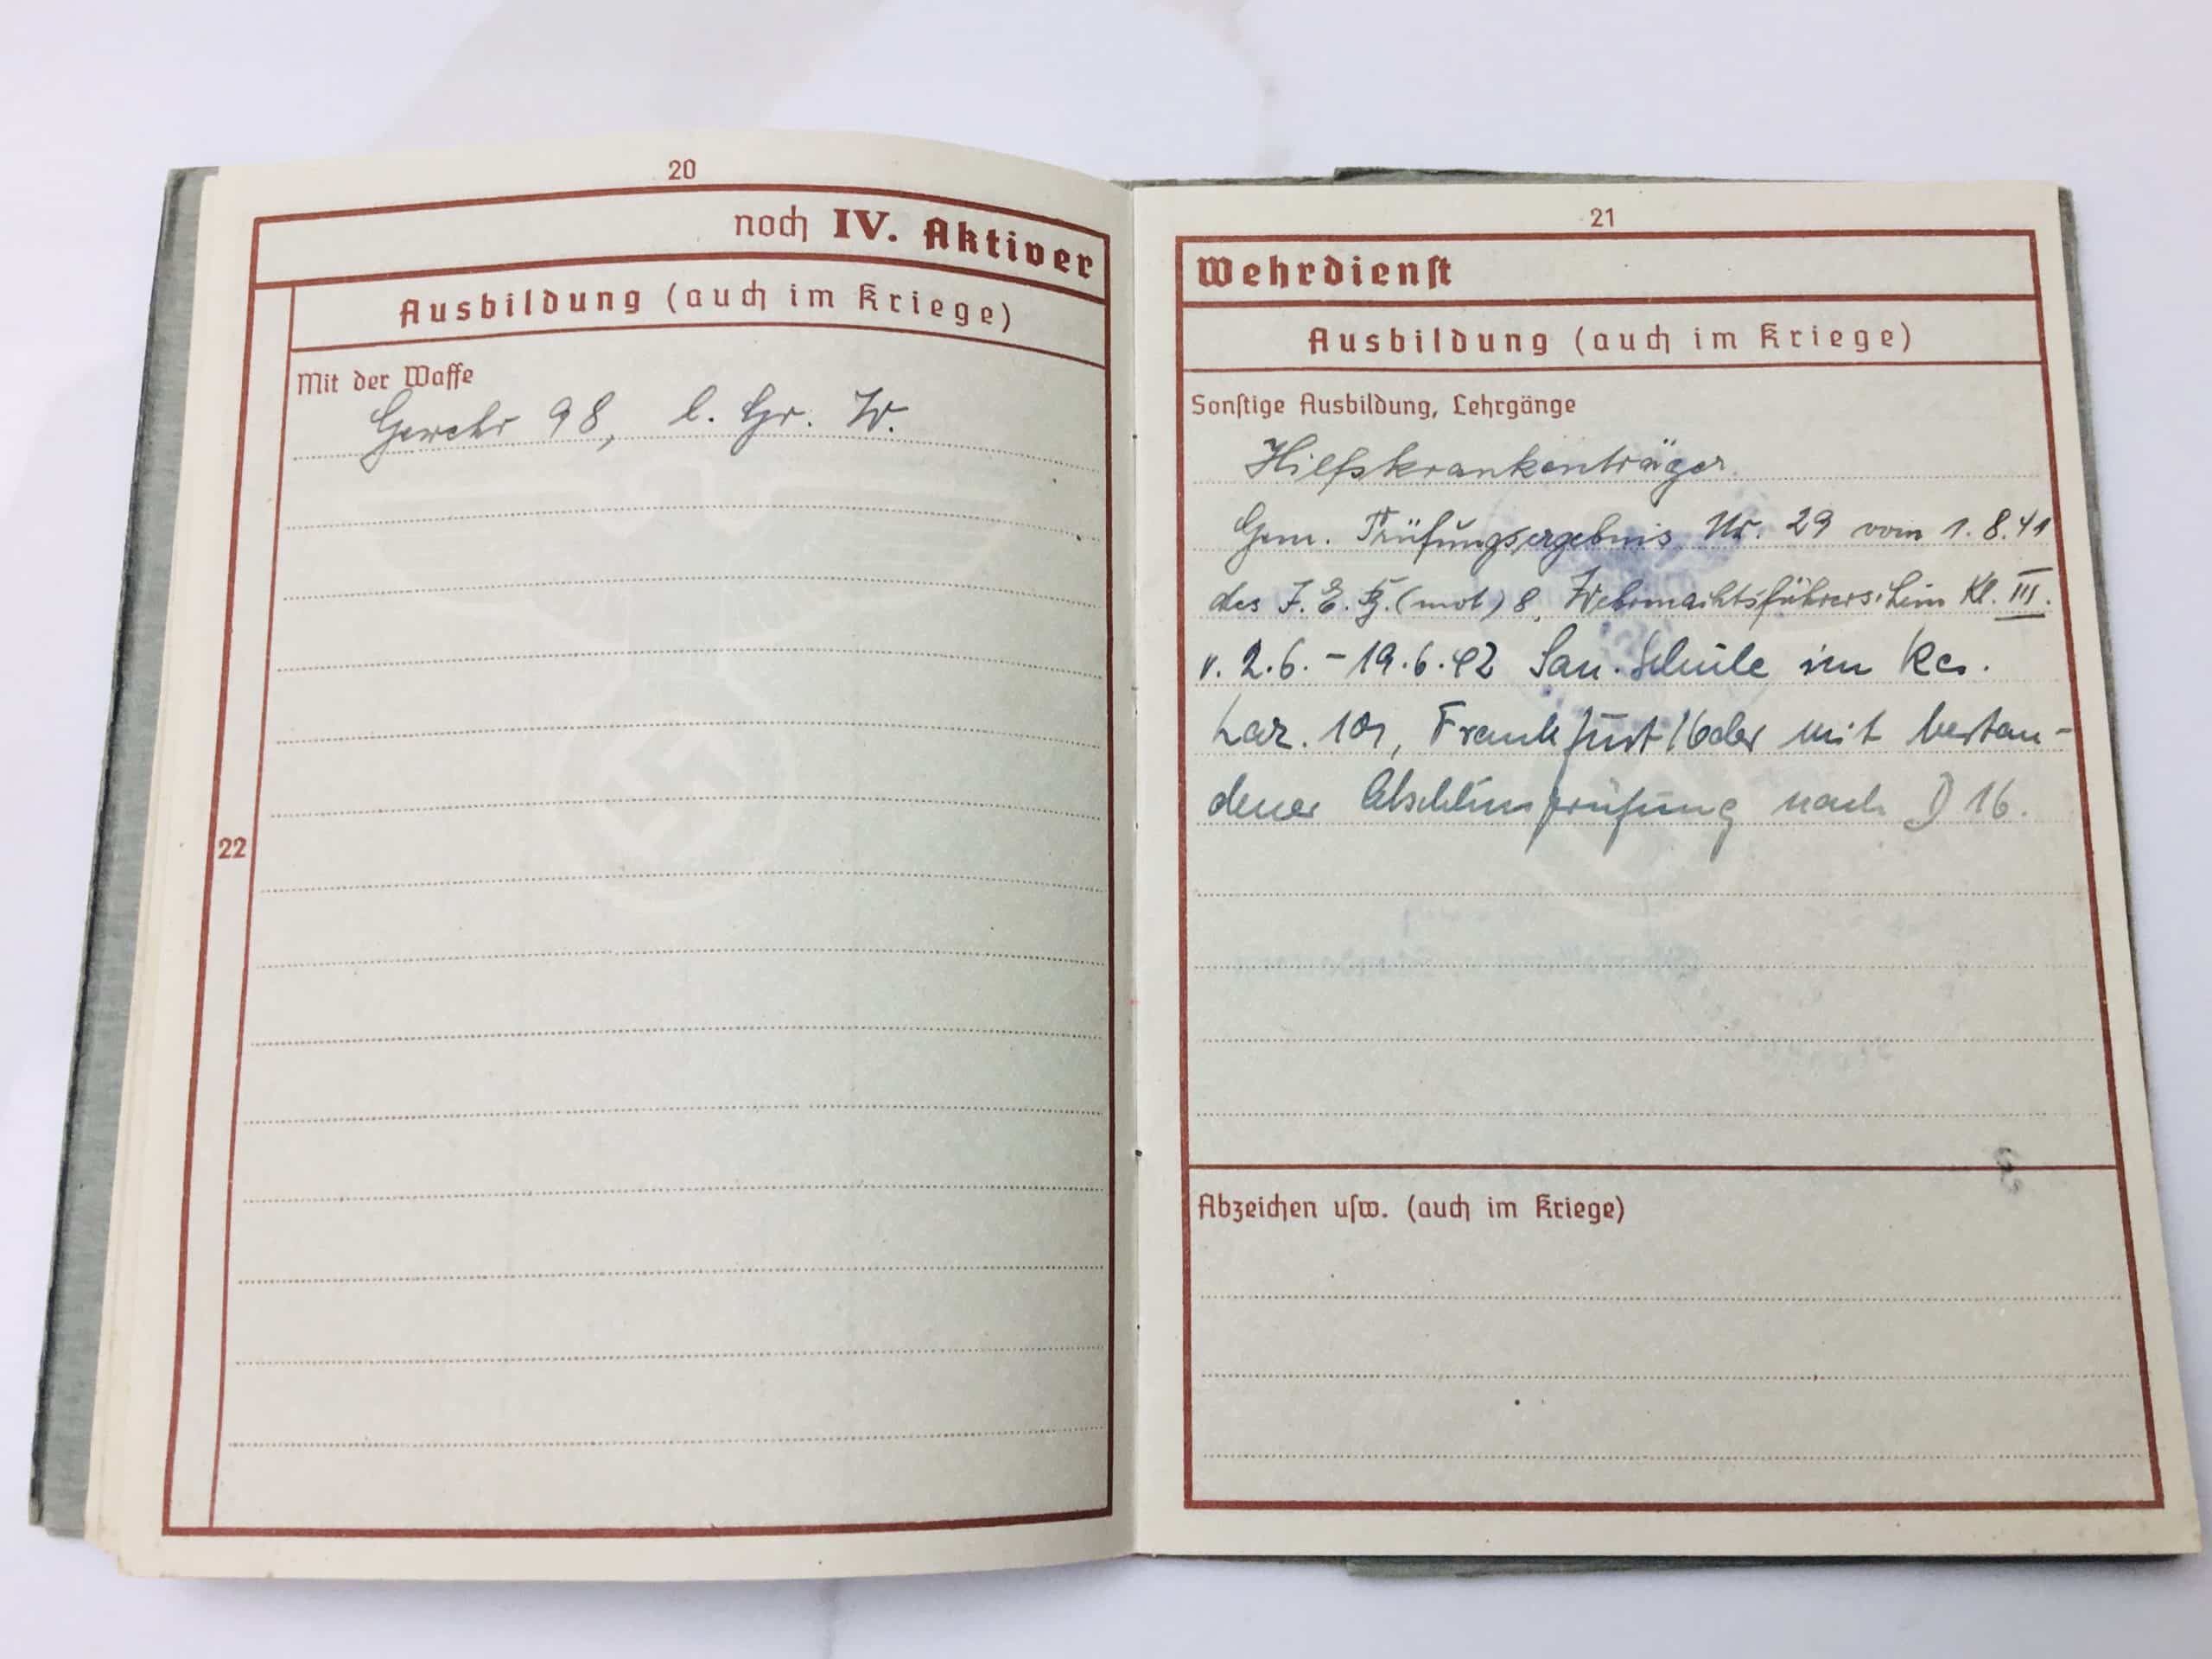 20
noch IV. Aktiver
Ausbildung (auch im Kriege)
Mit der Waffe
Gewehr 98, l. Gr. W.
22
21
Wehrdienst
Ausbildung (auch im Kriege)
Sonstige Ausbildung, Lehrgänge
Hilfskrankenträger
Gem. Prüfungsergebnis Nr. 29 vom 1.8.41
des I.E. (mot) 8, Wehrmachtsführerschein Kl. III.
v. 2.6. - 19.6.42 San. Schule im Res.
Laz. 101, Frankfurt/Oder mit bestan-
dener Abschlussprüfung nach D 16.
Abzeichen usw. (auch im Kriege)